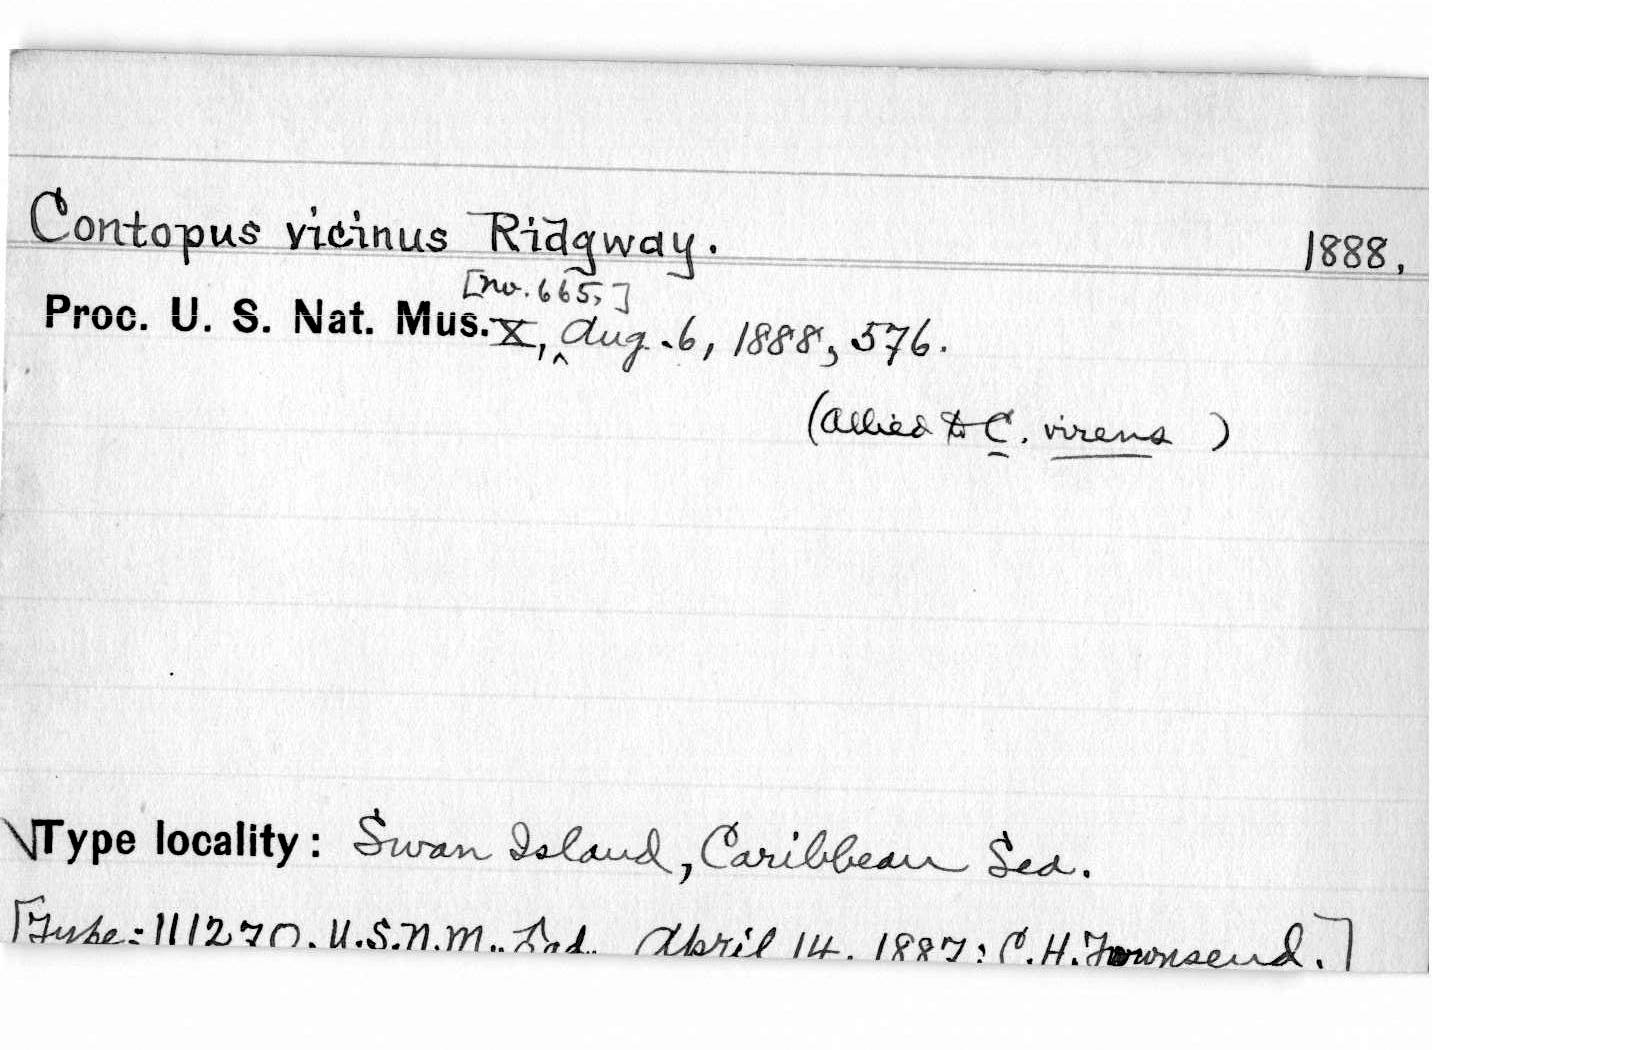 Contopus vicinus Ridgway. 1888.
[no. 665,]
Proc. U. S. Nat. Mus. X, ^ Aug. 6, 1888, 576.
(allied to C. virens )
√Type locality: Swan Island, Caribbean Sea.
[Type: 111270. U.S.N.M., ad. April 14. 1887: C.H. Townsend.]